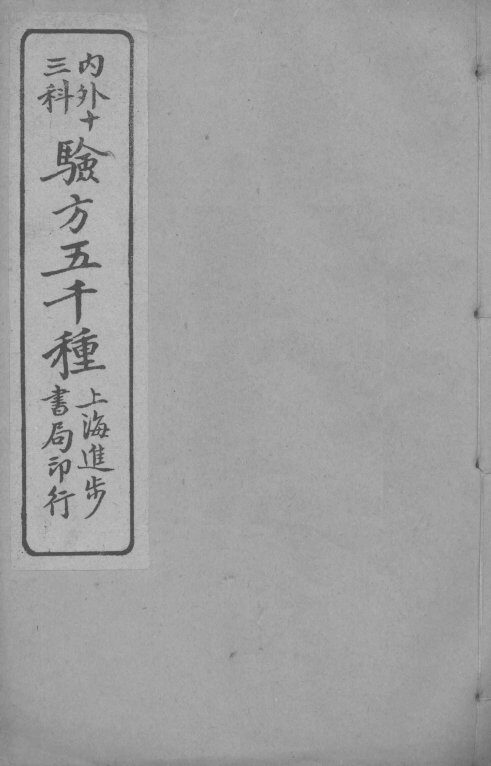 內外十
三科
驗方五千種
上海進步
書局印行